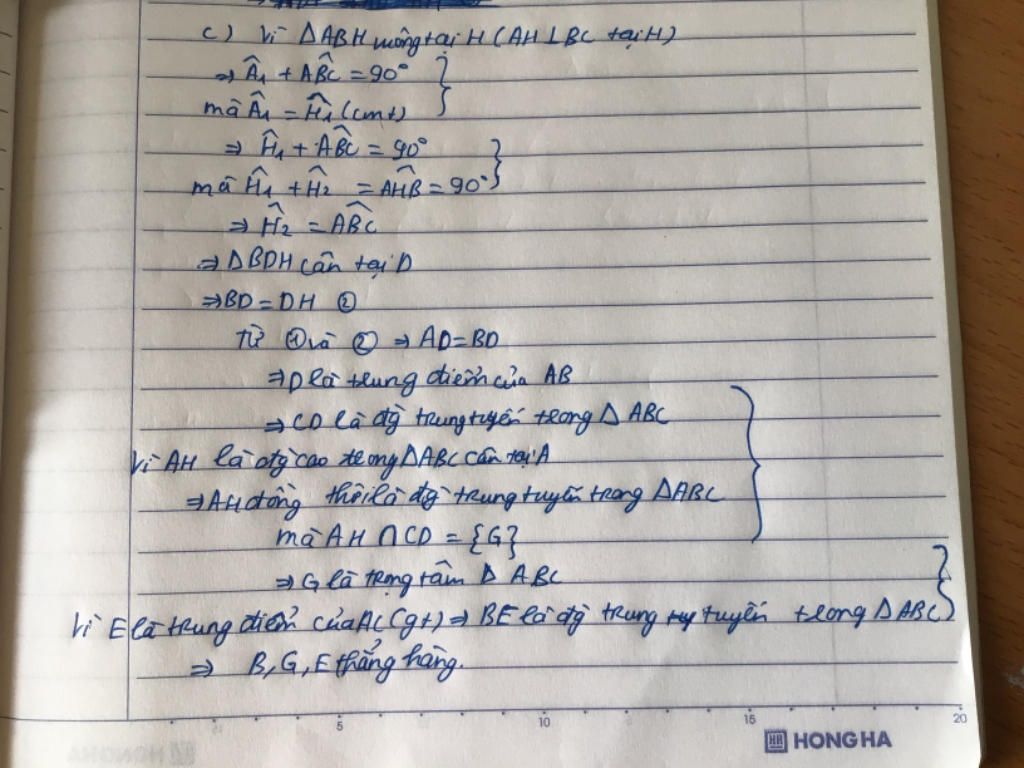 c) Vì ΔABH vuông tại H (AH ⊥ BC tại H)
⇒ Â₁ + ABĈ = 90°
mà Â₁ = Ĥ₁ (cmt)
⇒ Ĥ₁ + ABĈ = 90°
mà Ĥ₁ + Ĥ₂ = AHB̂ = 90°
⇒ Ĥ₂ = ABĈ
⇒ ΔBDH cân tại D
⇒ BD = DH ②
Từ ① và ② ⇒ AD = BD
⇒ D là trung điểm của AB
⇒ CD là đg̀ trung tuyến trong Δ ABC
Vì AH là đg̀ cao trong ΔABC cân tại A
⇒ AH đồng thời là đg̀ trung tuyến trong ΔABC
mà AH ∩ CD = {G}
⇒ G là trọng tâm Δ ABC
Vì E là trung điểm của AC (gt) ⇒ BE là đg̀ trung tuyến trong Δ ABC
⇒ B, G, E thẳng hàng.
5 10 15 20
HH HONG HA